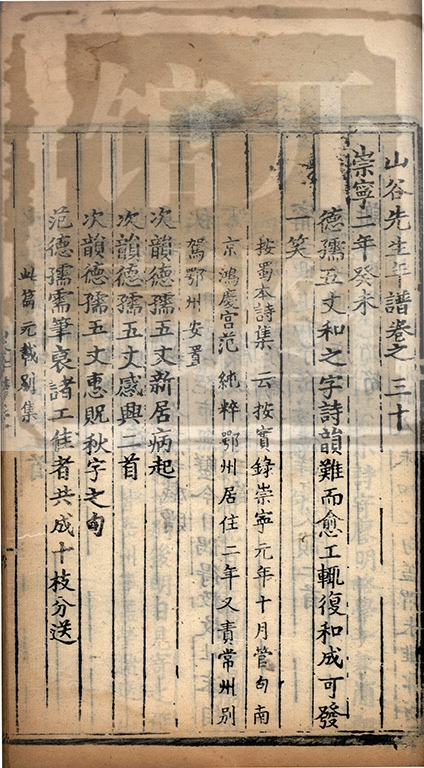 山谷先生年譜卷之三十
崇寧二年癸未
德孺五丈和之字詩韻難而愈工輒復和成可發
一笑
按蜀本詩集云按實錄崇寧元年十月管句南
京鴻慶宮范純粹鄂州居住二年又責常州別
駕鄂州安置
次韻德孺五丈新居病起
次韻德孺五丈感興二首
次韻德孺五丈惠貺秋字之句
范德孺需筆裒諸工佳者共成十枝分送
此篇元載別集